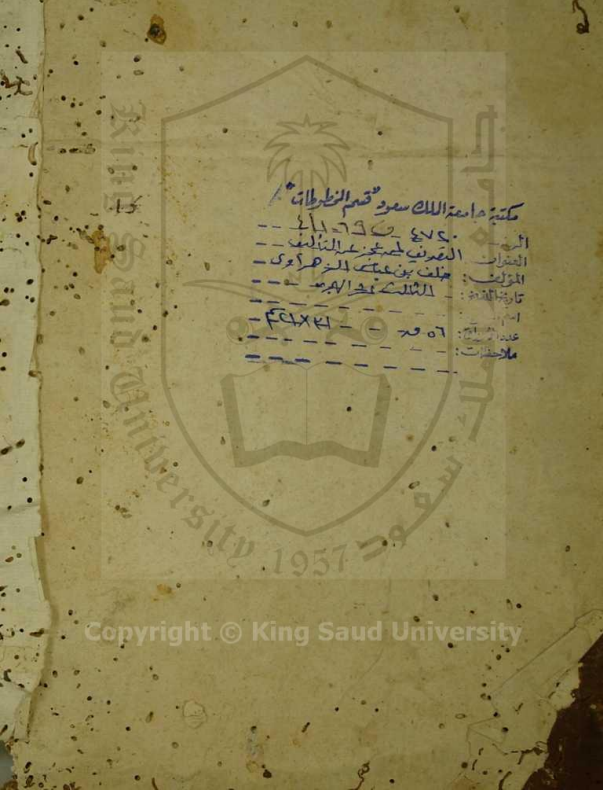 مكتبة جامعة الملك سعود "قسم المخطوطات"
الرقم: ٤٧٢٠
العنوان: التصريف لمن عجز عن التأليف
المؤلف: خلف بن عباس الزهراوي
تاريخ النسخ: الثالث عشر الهجري
عدد الأوراق: ٥٦ ق
ملاحظات:
King Saud University
جامعة الملك سعود
1957
Copyright © King Saud University